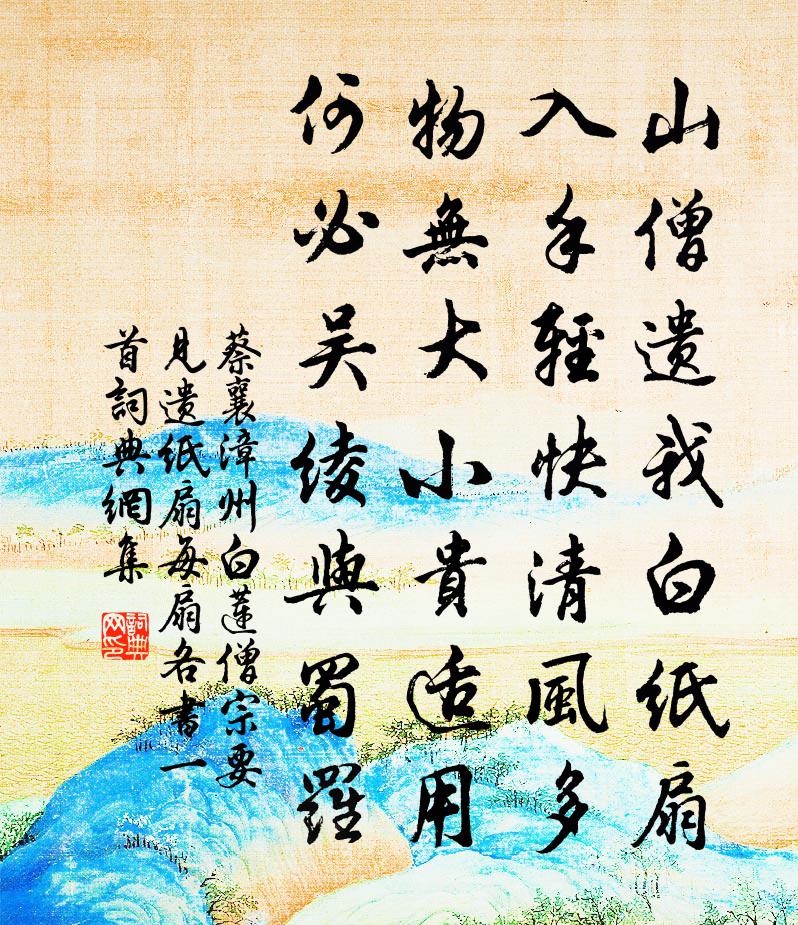 山僧遺我白紙扇
入手輕快清風多
物無大小貴適用
何必吴綾與蜀羅
蔡襄漳州白蓮僧宗要
見遺紙扇每扇各書一
首詞典網集
詞典
网印